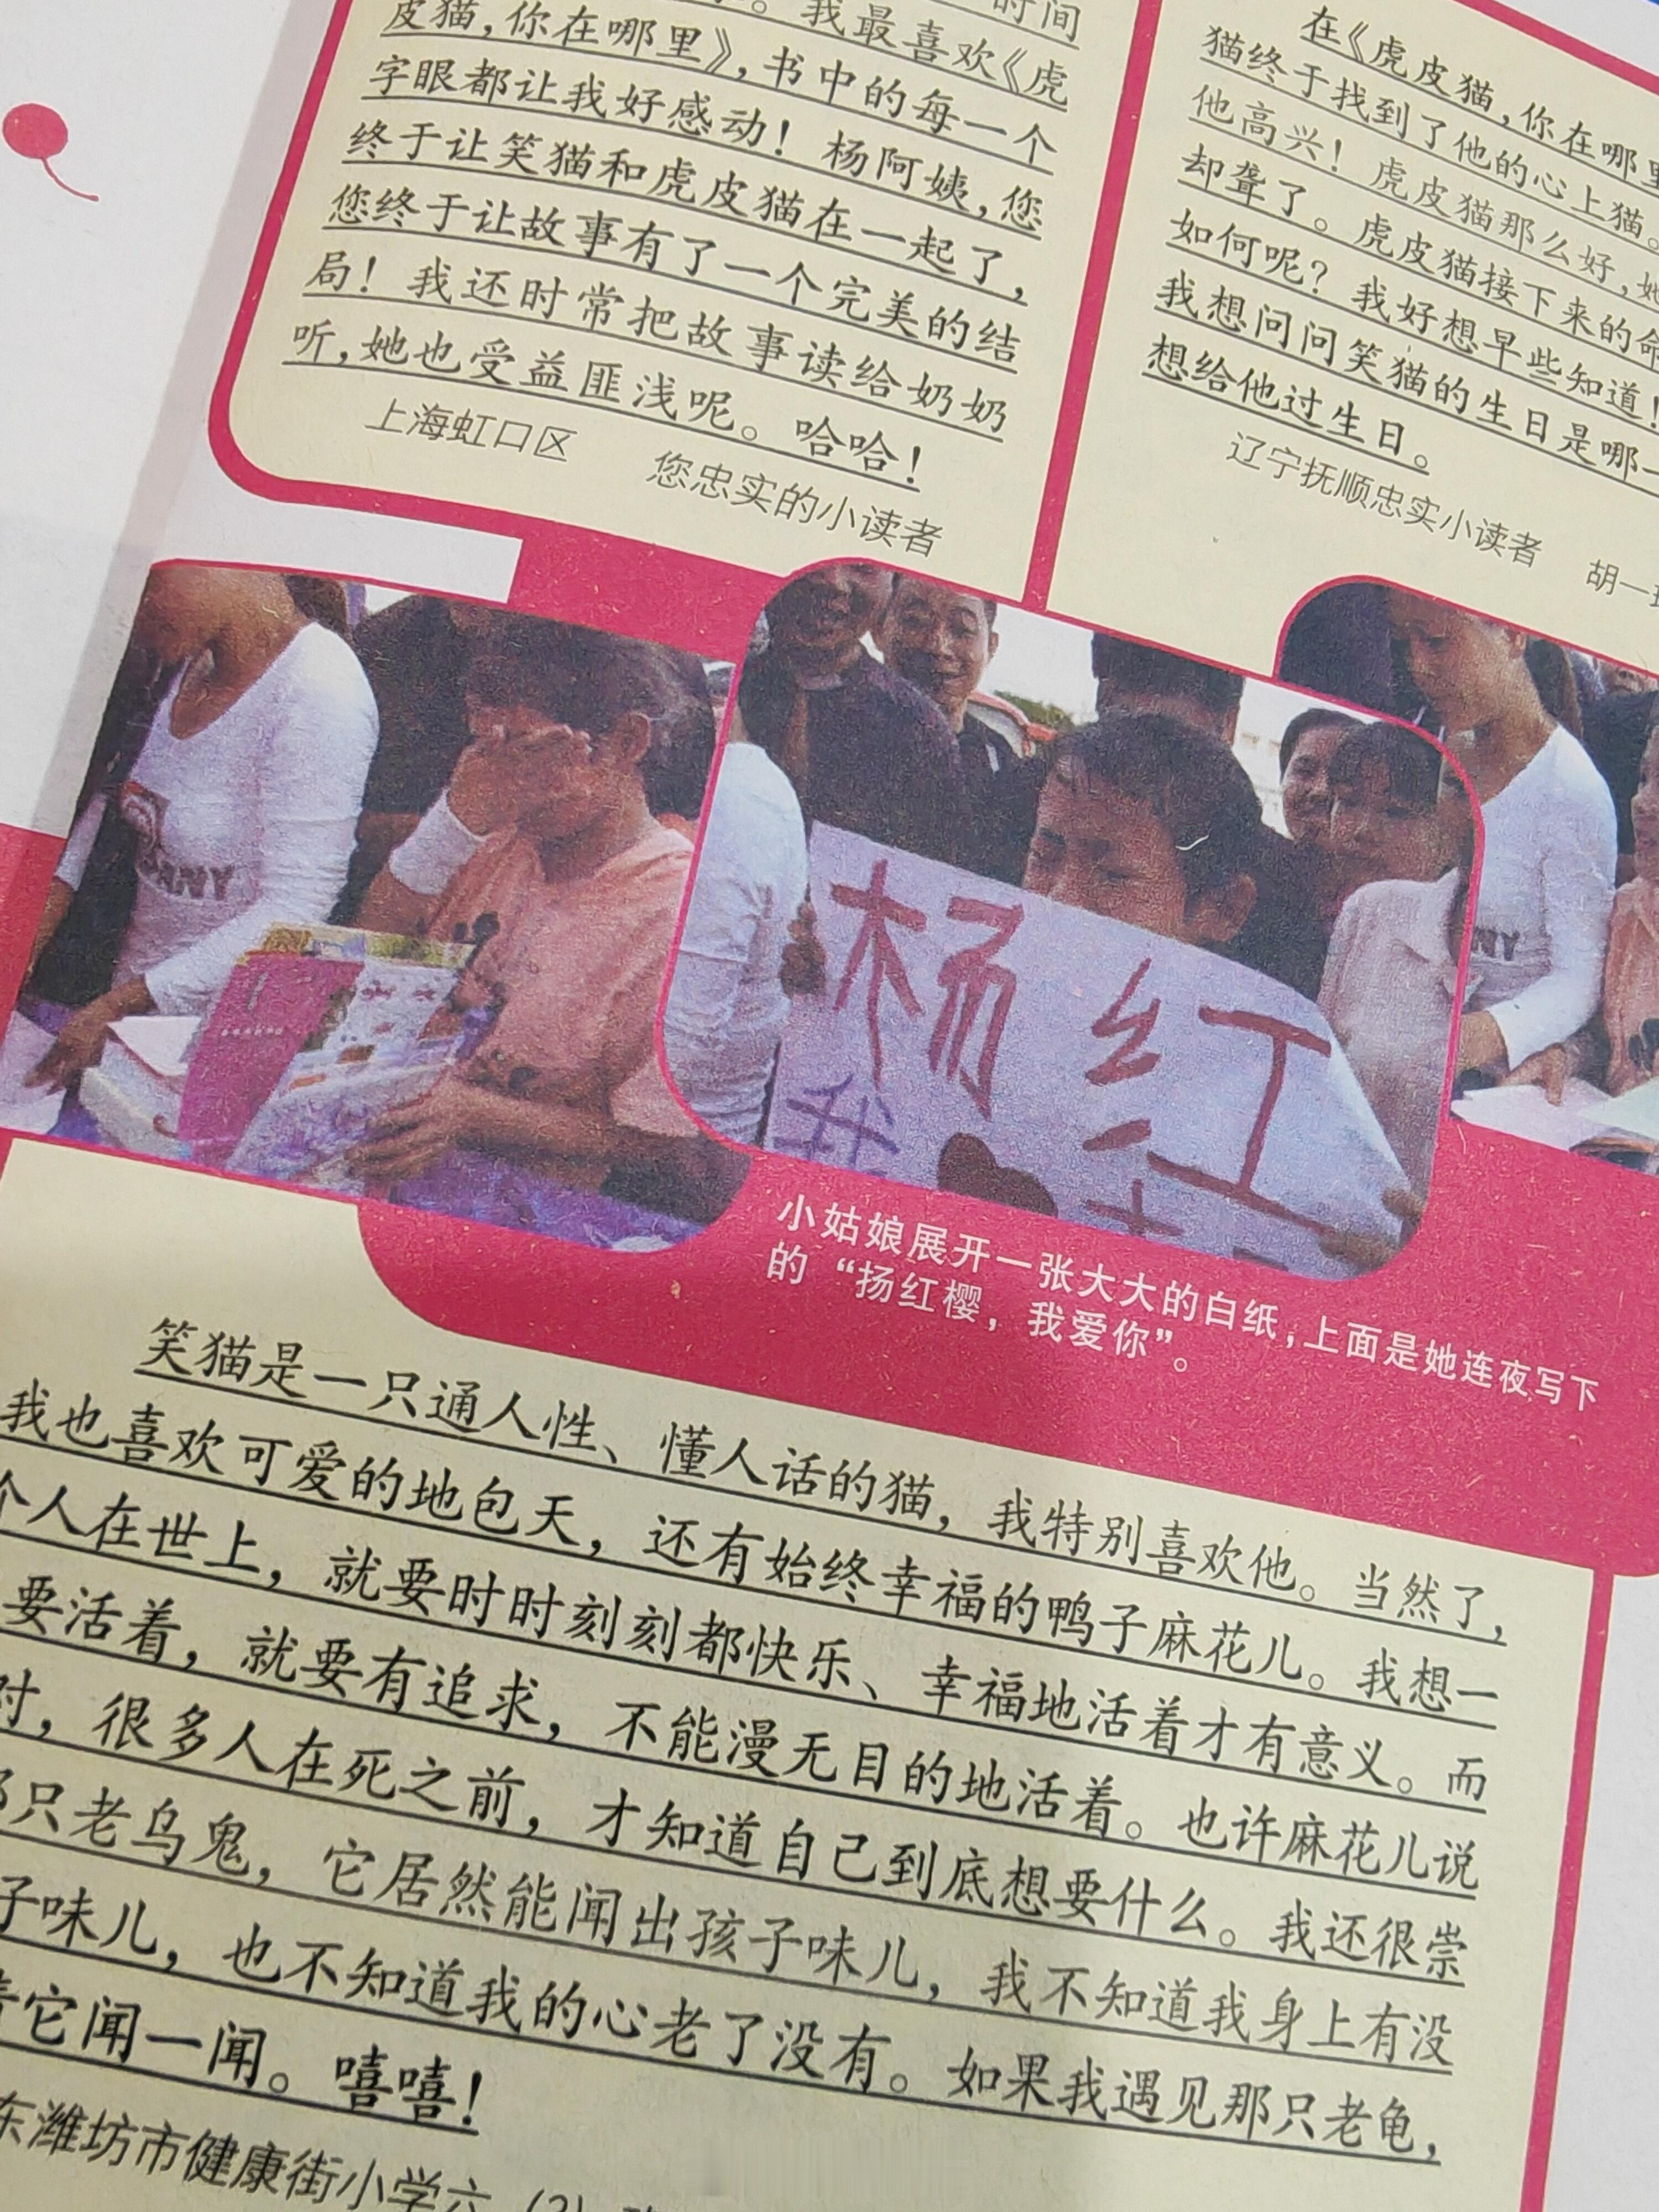 时间
我最喜欢《虎
皮猫，你在哪里》，书中的每一个
字眼都让我好感动！杨阿姨，您
终于让笑猫和虎皮猫在一起了，
您终于让故事有了一个完美的结
局！我还时常把故事读给奶奶
听，她也受益匪浅呢。哈哈！
上海虹口区 您忠实的小读者
在《虎皮猫，你在哪里
猫终于找到了他的心上猫。
他高兴！虎皮猫那么好，她
却聋了。虎皮猫接下来的命
如何呢？我好想早些知道！
我想问问笑猫的生日是哪一
想给他过生日。
辽宁抚顺忠实小读者 胡一
PANY
杨红
我
NY
小姑娘展开一张大大的白纸，上面是她连夜写下
的“扬红樱，我爱你”。
笑猫是一只通人性、懂人话的猫，我特别喜欢他。当然了，
我也喜欢可爱的地包天，还有始终幸福的鸭子麻花儿。我想一
个人在世上，就要时时刻刻都快乐、幸福地活着才有意义。而
要活着，就要有追求，不能漫无目的地活着。也许麻花儿说
对，很多人在死之前，才知道自己到底想要什么。我还很崇
那只老乌鬼，它居然能闻出孩子味儿，我不知道我身上有没
子味儿，也不知道我的心老了没有。如果我遇见那只老龟，
请它闻一闻。嘻嘻！
东潍坊市健康街小学六（2）班